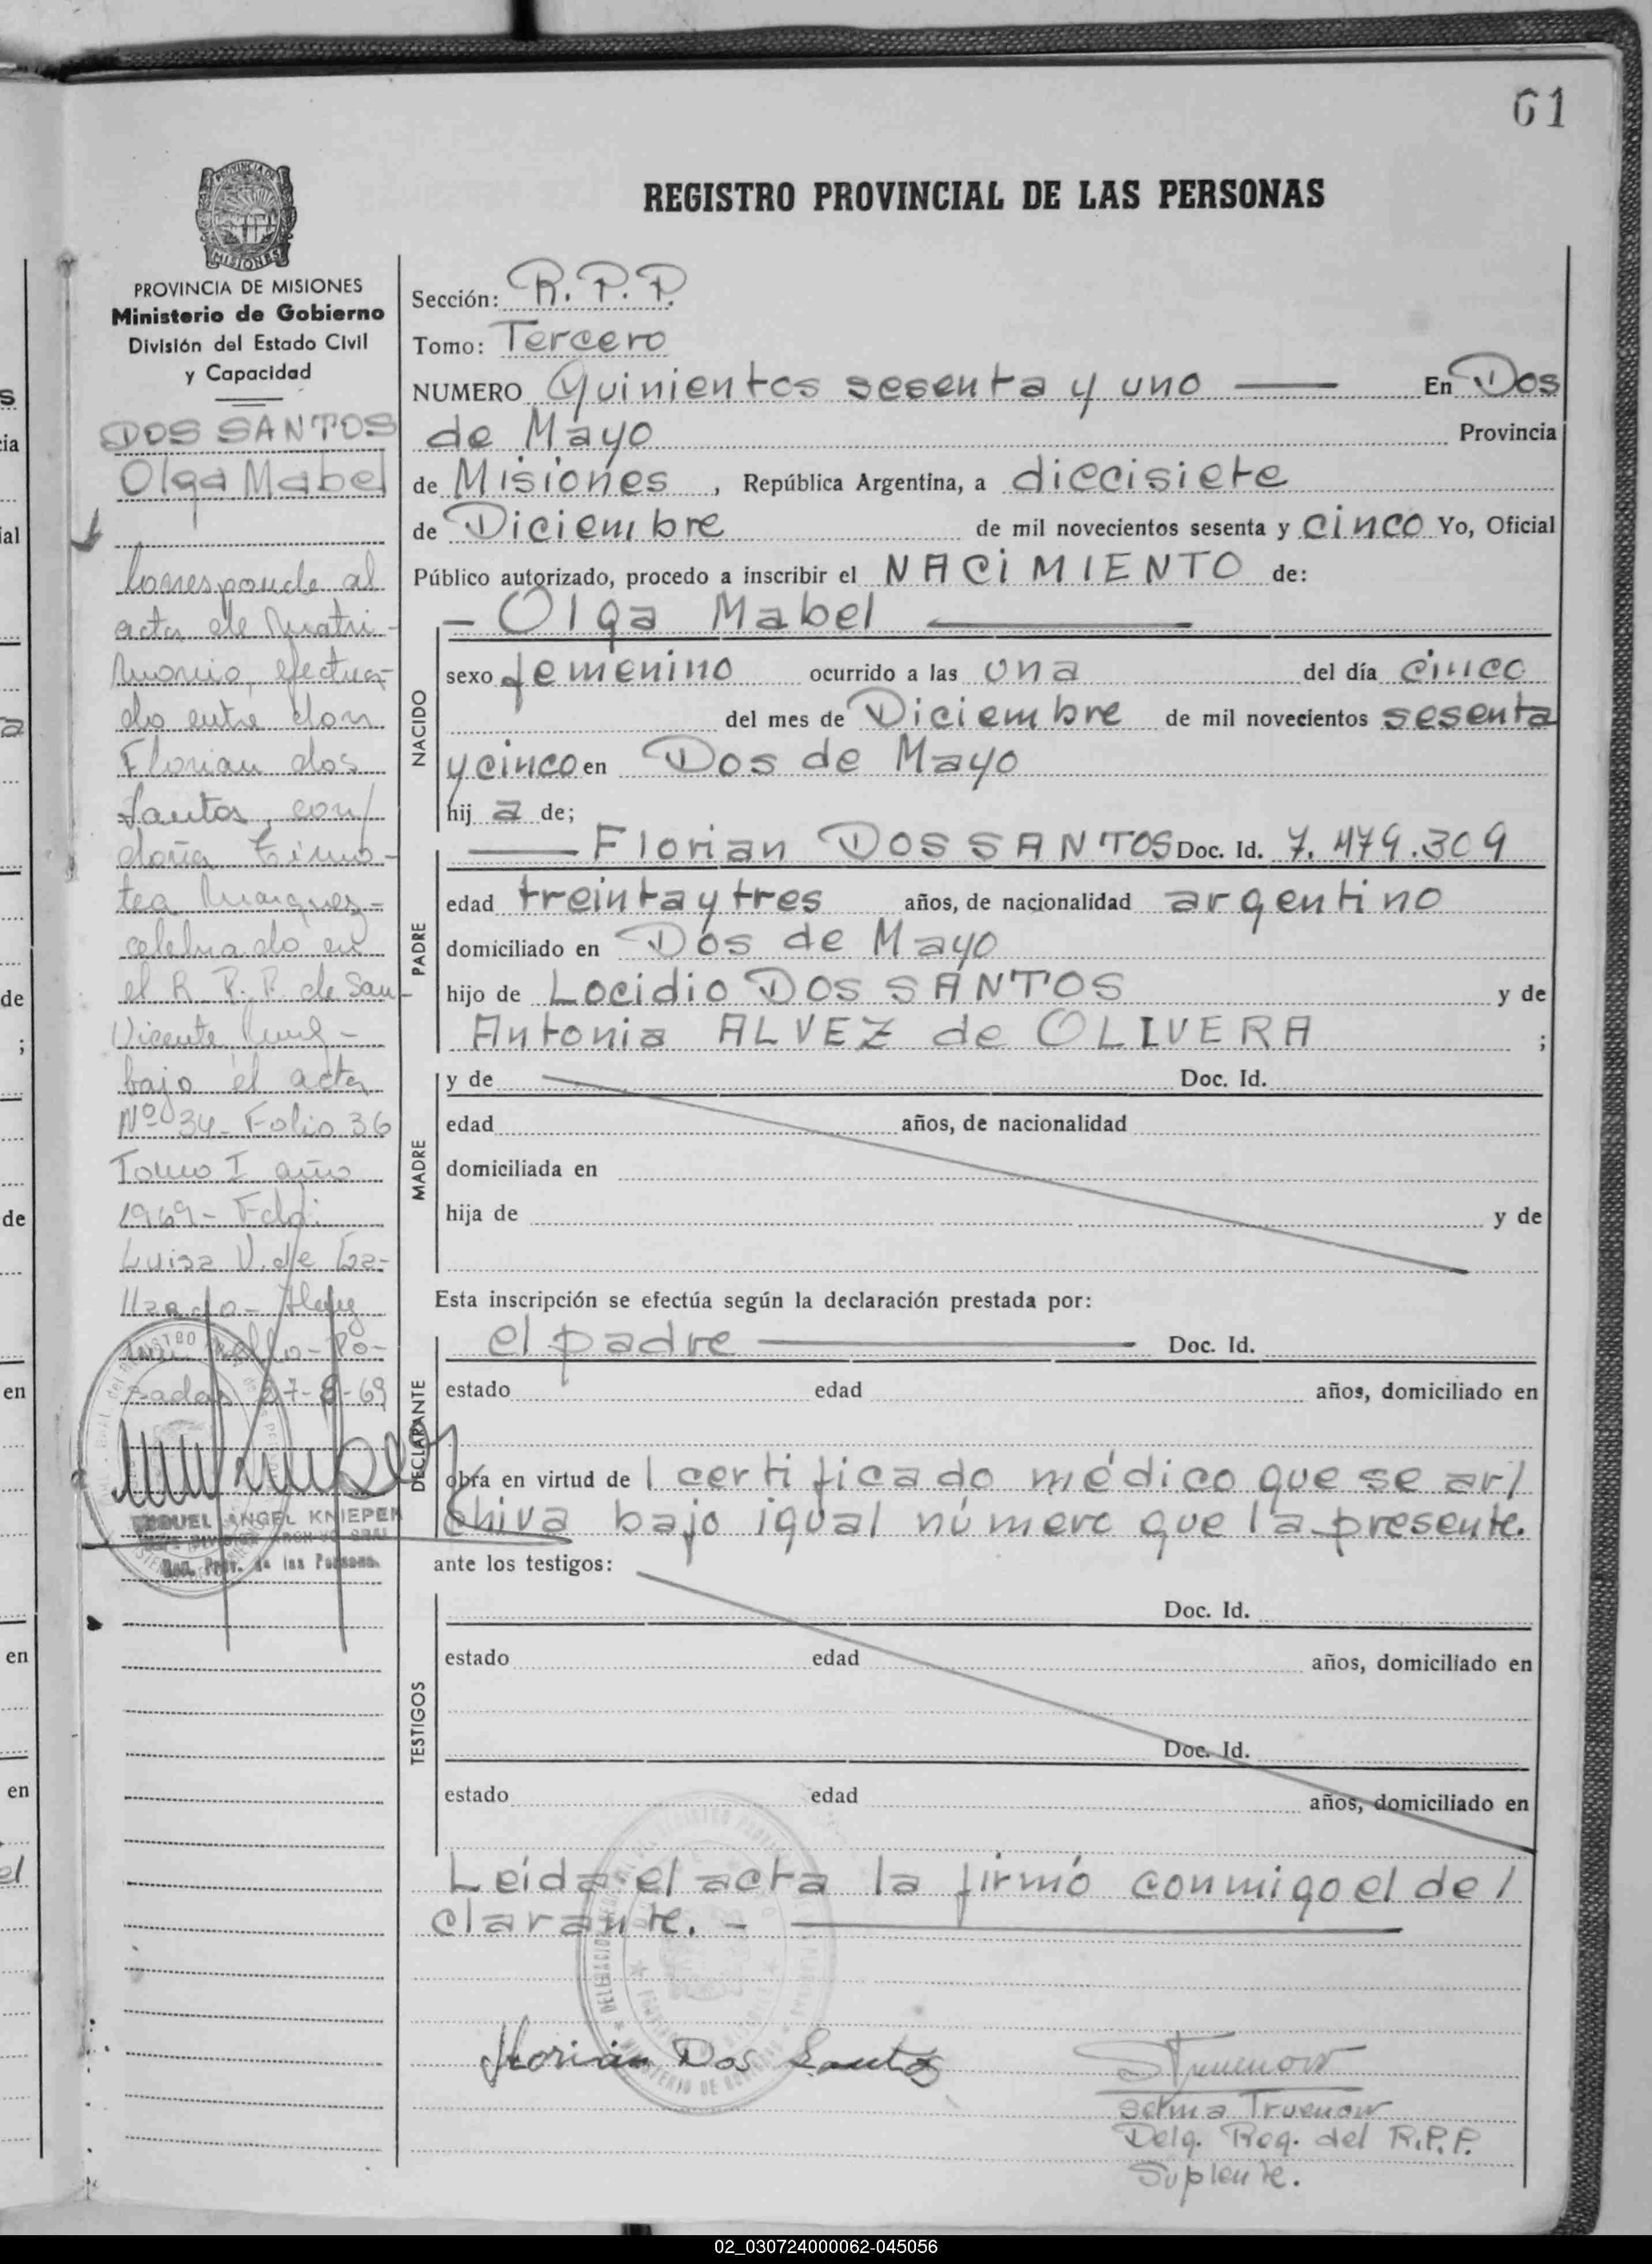 61
REGISTRO PROVINCIAL DE LAS PERSONAS
PROVINCIA DE
MISIONES
PROVINCIA DE MISIONES
Ministerio de Gobierno
División del Estado Civil
y Capacidad
DOS SANTOS
Olga Mabel
Corresponde al
acta de Matri-
monio, efectua-
do entre don
Florian dos
Santos, con/
doña Timo-
tea Marquez-
celebrado en
el R.P.P. de San-
Vicente
bajo el acta
Nº 34- Folio 36
Tomo I año
1969- Fdo:
Luisa V. de
Po-
sadas 27-8-69
MIGUEL ANGEL KNIEPER
Reg. Prov. de las Personas.
Sección: R.P.P.
Tomo: Tercero
NUMERO Quinientos sesenta y uno —— En Dos
de Mayo Provincia
de Misiones , República Argentina, a diecisiete
de Diciembre de mil novecientos sesenta y cinco Yo, Oficial
Público autorizado, procedo a inscribir el NACIMIENTO de:
- Olga Mabel ——
NACIDO
sexo femenino ocurrido a las una del día cinco
del mes de Diciembre de mil novecientos sesenta
y cinco en Dos de Mayo
hij a de;
PADRE
—— Florian DOS SANTOS Doc. Id. 7.479.309
edad treinta y tres años, de nacionalidad argentino
domiciliado en Dos de Mayo
hijo de Locidio DOS SANTOS y de
Antonia ALVEZ de OLIVERA ;
MADRE
y de Doc. Id.
edad años, de nacionalidad
domiciliada en
hija de y de
Esta inscripción se efectúa según la declaración prestada por:
DECLARANTE
el padre —— Doc. Id.
estado edad años, domiciliado en
obra en virtud de l certificado médico que se ar/
chiva bajo igual número que la presente.
ante los testigos:
TESTIGOS
Doc. Id.
estado edad años, domiciliado en
Doc. Id.
estado edad años, domiciliado en
Leída el acta la firmó conmigo el de/
clarante. - ——
Florian Dos Santos
STruenow
Selma Truenow
Delg. Reg. del R.P.P.
Suplente.
02_030724000062-045056